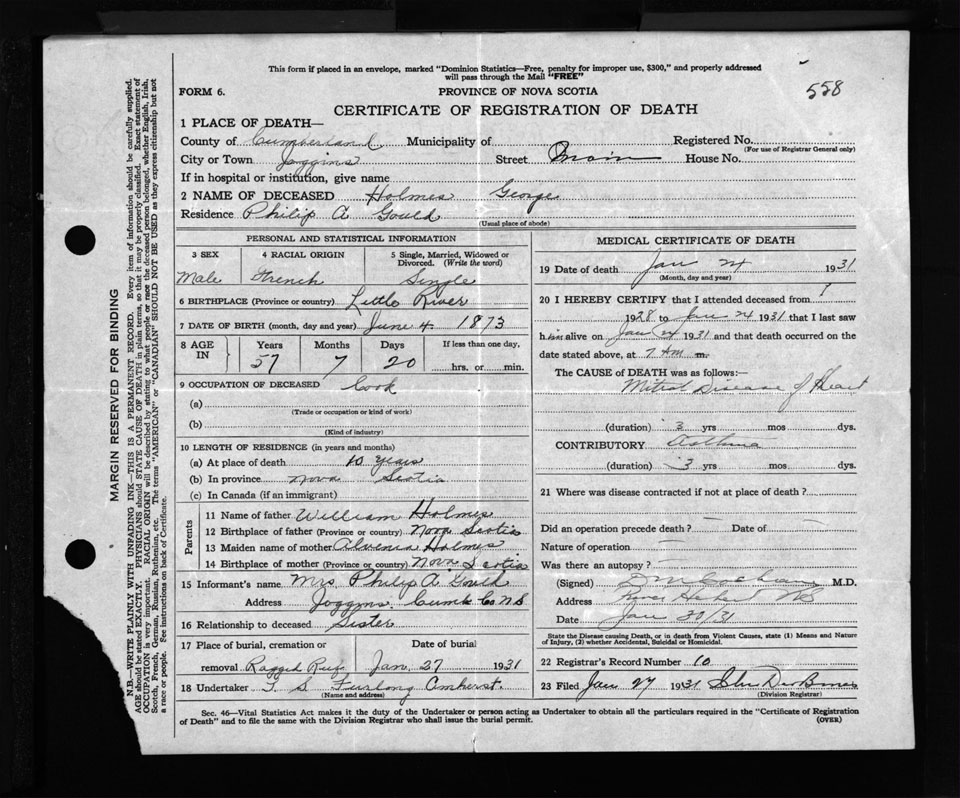 This form if placed in an envelope, marked "Dominion Statistics—Free, penalty for improper use, $300," and properly addressed
will pass through the Mail "FREE"
558
FORM 6.
PROVINCE OF NOVA SCOTIA
CERTIFICATE OF REGISTRATION OF DEATH
1 PLACE OF DEATH—
County of Cumberland Municipality of Registered No.
(For use of Registrar General only)
City or Town Joggins Street Main House No.
If in hospital or institution, give name
2 NAME OF DECEASED Holmes George
Residence Philip A Gould
(Usual place of abode)
PERSONAL AND STATISTICAL INFORMATION
3 SEX 4 RACIAL ORIGIN 5 Single, Married, Widowed or
Divorced. (Write the word)
Male French Single
6 BIRTHPLACE (Province or country) Little River
7 DATE OF BIRTH (month, day and year) June 4 1873
8 AGE IN Years Months Days If less than one day,
57 7 20 hrs. or min.
9 OCCUPATION OF DECEASED Cook
(a)
(Trade or occupation or kind of work)
(b)
(Kind of industry)
10 LENGTH OF RESIDENCE (in years and months)
(a) At place of death 10 years
(b) In province Nova Scotia
(c) In Canada (if an immigrant)
Parents
11 Name of father William Holmes
12 Birthplace of father (Province or country) Nova Scotia
13 Maiden name of mother Holmes
14 Birthplace of mother (Province or country) Nova Scotia
15 Informant's name Mrs Philip A Gould
Address Joggins Cumb Co N.S
16 Relationship to deceased Sister
17 Place of burial, cremation or Date of burial
removal Ragged Reef Jan. 27 1931
18 Undertaker T. S. Furlong Amherst.
(Name and address)
MEDICAL CERTIFICATE OF DEATH
19 Date of death Jan 24 1931
(Month, day and year)
20 I HEREBY CERTIFY that I attended deceased from
1928 to Jan 24 1931 that I last saw
him alive on Jan 24 1931 and that death occurred on the
date stated above, at 7 AM m.
The CAUSE of DEATH was as follows:—
Mitral Disease of Heart
(duration) 3 yrs mos dys.
CONTRIBUTORY Asthma
(duration) 3 yrs mos dys.
21 Where was disease contracted if not at place of death?
Did an operation precede death? — Date of —
Nature of operation —
Was there an autopsy? —
(Signed) D M Cochrane M.D.
Address River Hebert NS
Date Jan 30/31
State the Disease causing Death, or in death from Violent Causes, state (1) Means and Nature
of Injury, (2) whether Accidental, Suicidal or Homicidal.
22 Registrar's Record Number 10
23 Filed Jan 27 1931
(Division Registrar)
Sec. 46—Vital Statistics Act makes it the duty of the Undertaker or person acting as Undertaker to obtain all the particulars required in the "Certificate of Registration
of Death" and to file the same with the Division Registrar who shall issue the burial permit.
(OVER)
MARGIN RESERVED FOR BINDING
N.B.—WRITE PLAINLY WITH UNFADING INK—THIS IS A PERMANENT RECORD. Every item of information should be carefully supplied.
AGE should be stated EXACTLY. PHYSICIANS should STATE CAUSE OF DEATH in plain terms, so that it may be properly classified. Exact statement of
OCCUPATION is very important. RACIAL ORIGIN will be described by stating to what people or race the deceased person belonged, whether English, Irish,
Scotch, French, German, Russian, Ruthenian, etc. The terms "AMERICAN" or "CANADIAN" SHOULD NOT BE USED as they express citizenship but not
a race or people. See instructions on back of Certificate.